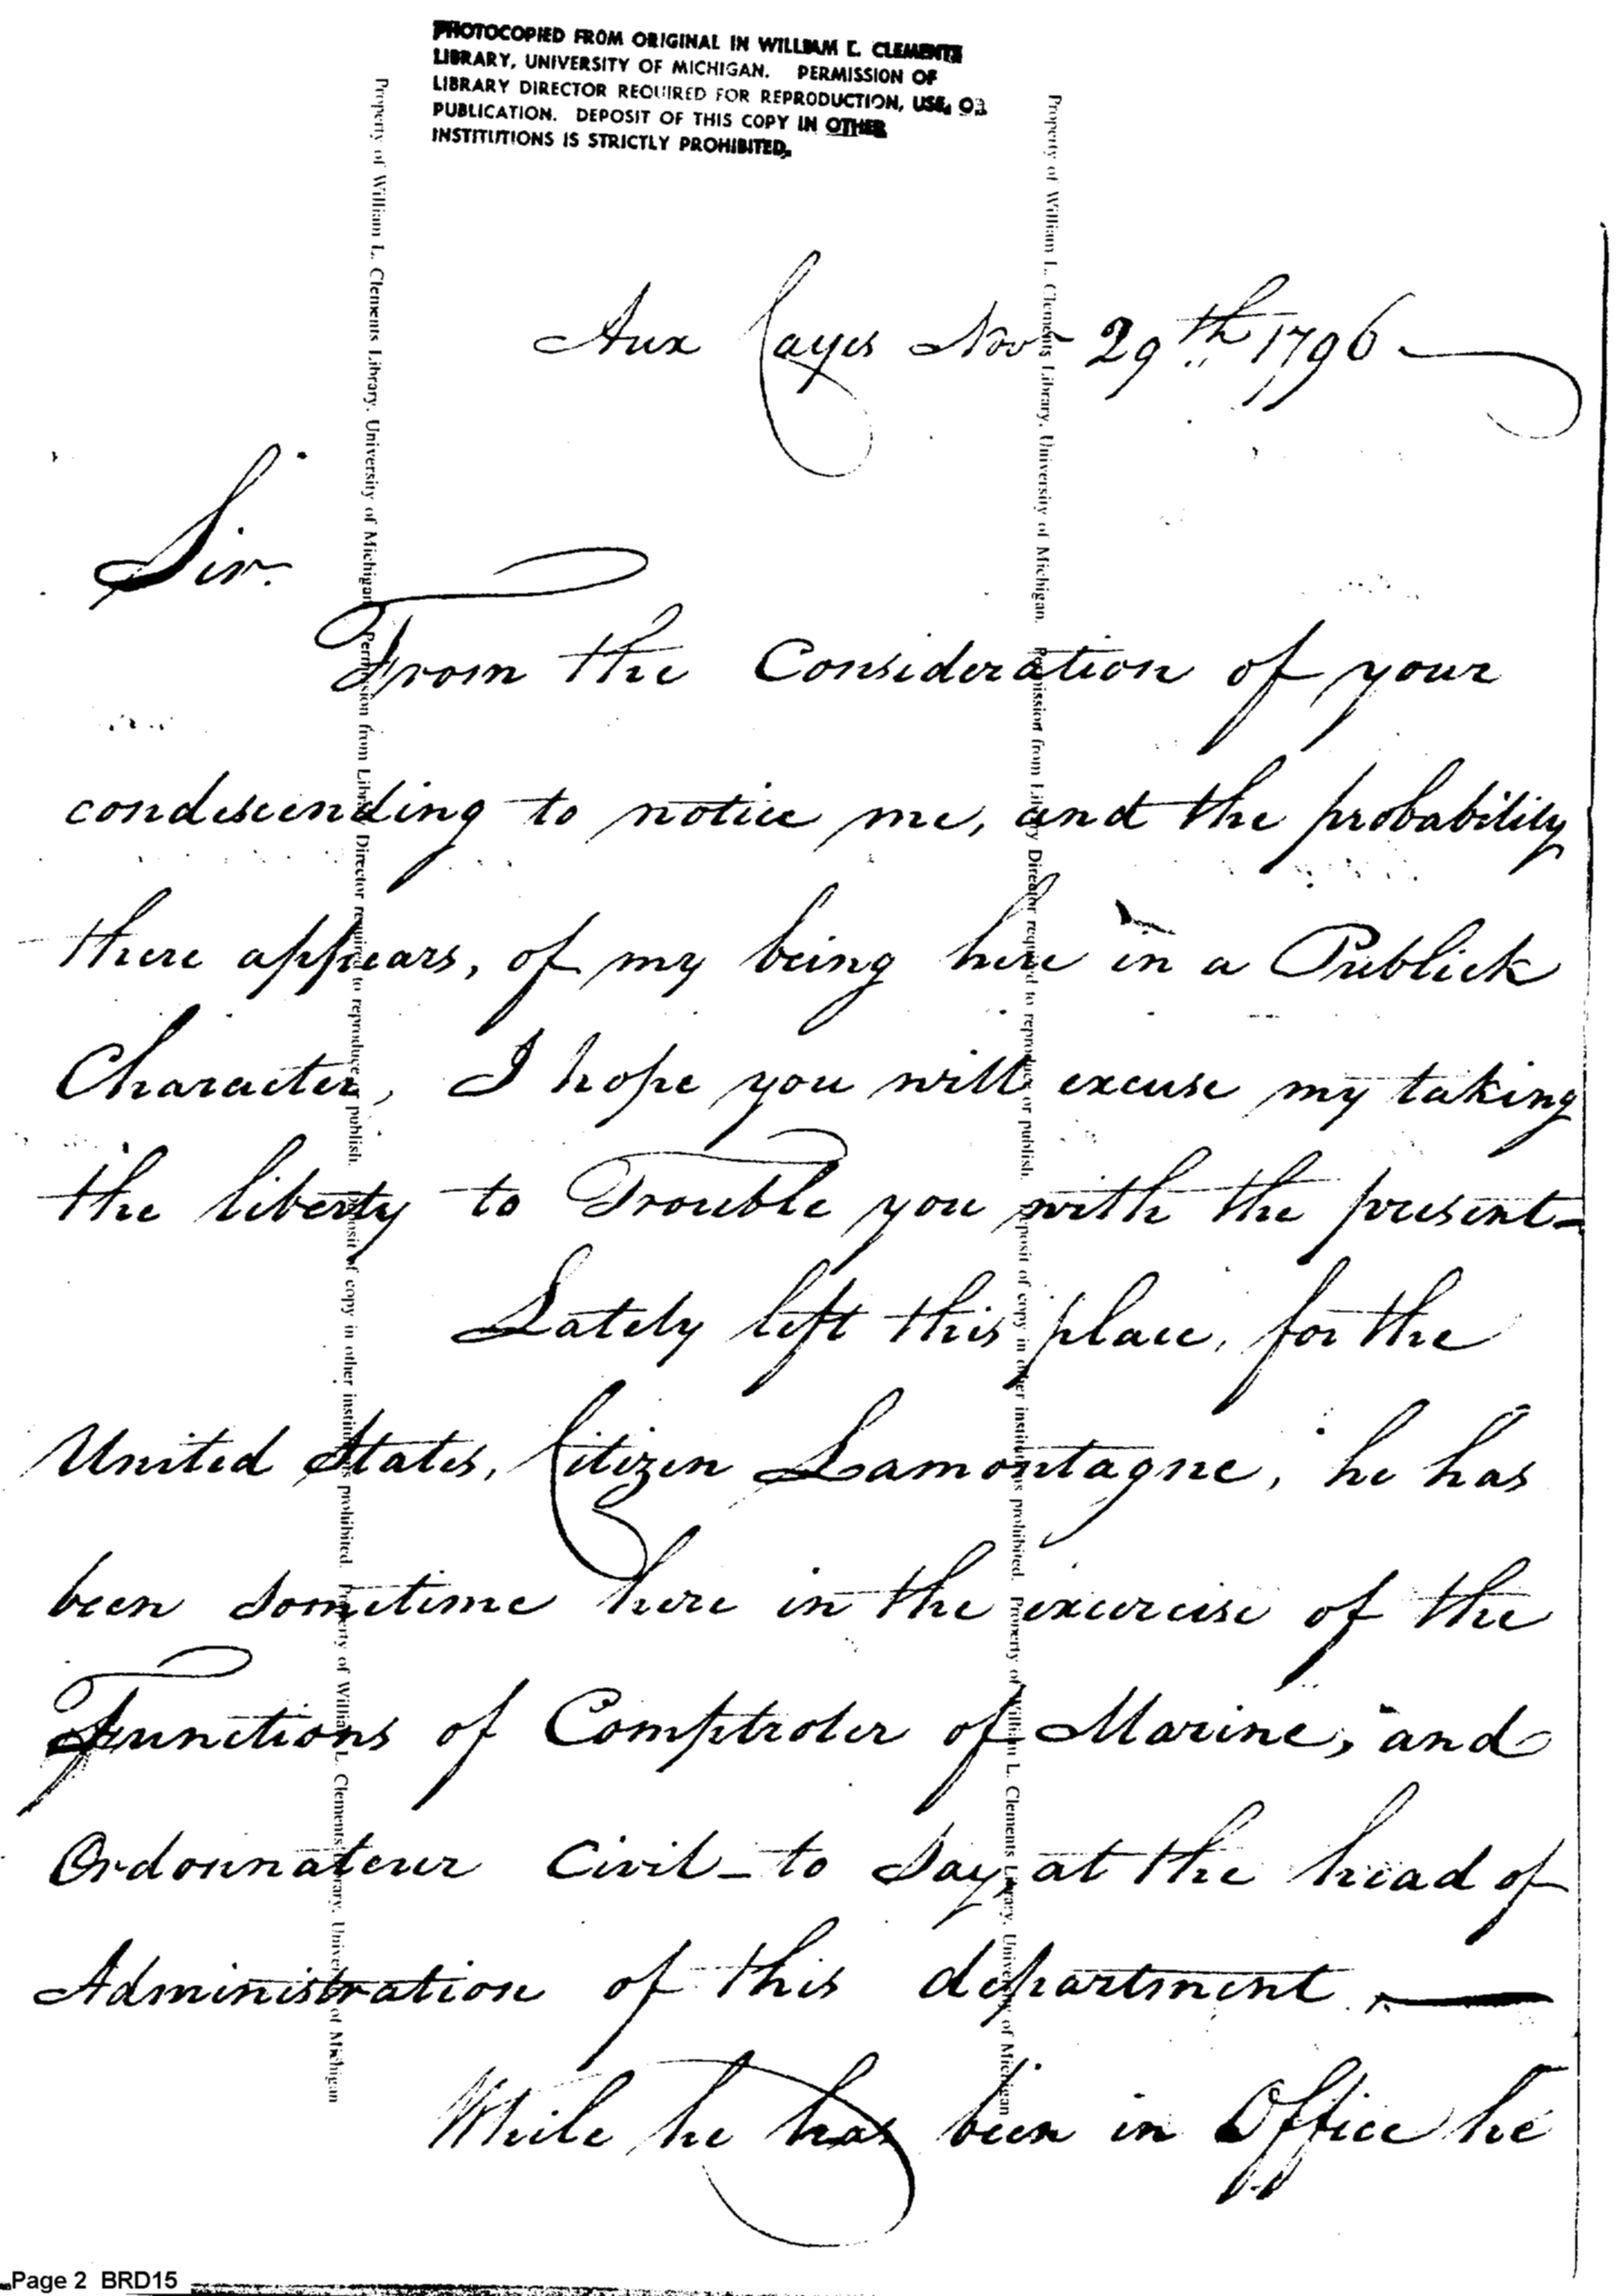 PHOTOCOPIED FROM ORIGINAL IN WILLIAM L. CLEMENTS
LIBRARY, UNIVERSITY OF MICHIGAN. PERMISSION OF
LIBRARY DIRECTOR REQUIRED FOR REPRODUCTION, USE, OR
PUBLICATION. DEPOSIT OF THIS COPY IN OTHER
INSTITUTIONS IS STRICTLY PROHIBITED.
Property of William L. Clements Library, University of Michigan. Permission from Library Director required to reproduce or publish. Deposit of copy in other institutions prohibited. Property of William L. Clements Library, University of Michigan
Property of William L. Clements Library, University of Michigan. Permission from Library Director required to reproduce or publish. Deposit of copy in other institutions prohibited. Property of William L. Clements Library, University of Michigan
Aux Cayes Novr 29th 1796
Sir.
From the Consideration of your
condescending to notice me, and the probability
there appears, of my being here in a Publick
Character, I hope you will excuse my taking
the liberty to Trouble you with the present-
Lately left this place, for the
United States, Citizen Lamontagne, he has
been sometime here in the excercise of the
Functions of Comptroler of Marine, and
Ordonnateur Civil - to say, at the head of
Administration of this department.
While he has been in Office he
Page 2 BRD15